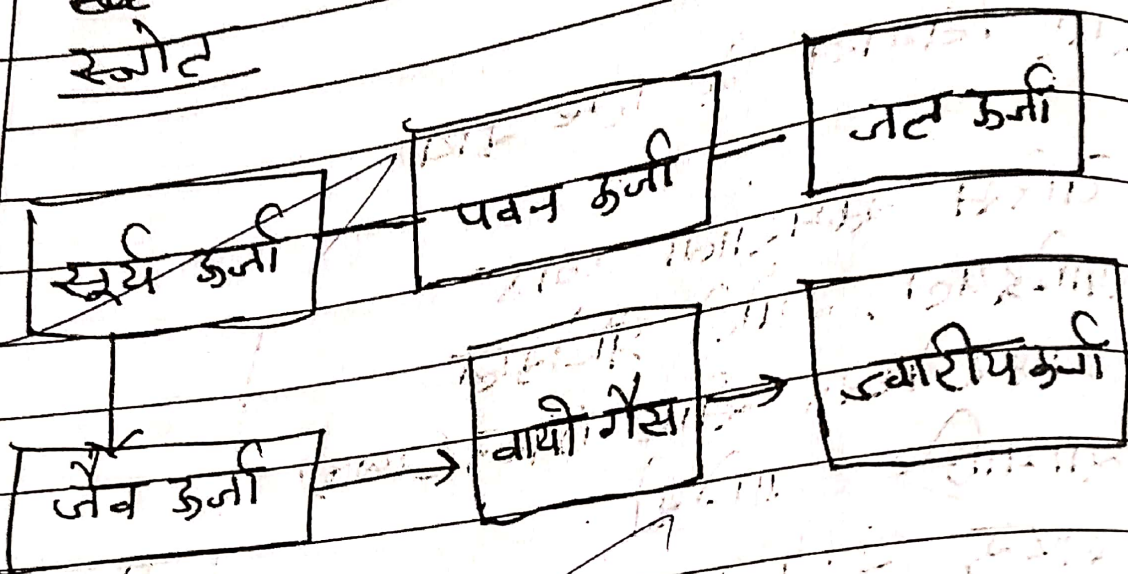 स्त्रोत
सूर्य ऊर्जा
पवन ऊर्जा
जल ऊर्जा
जैव ऊर्जा
वायो गैस
ज्वारीय ऊर्जा